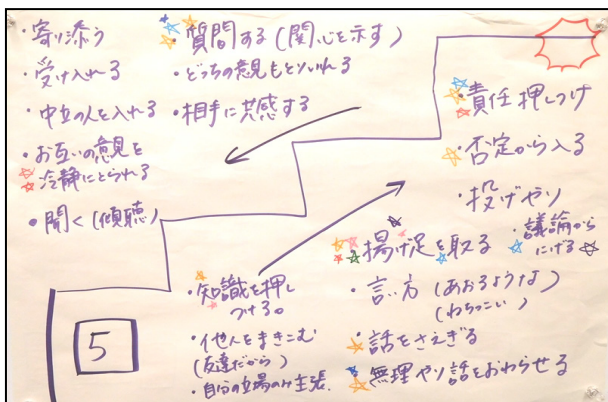 ・寄り添う
・受け入れる
・中立の人を入れる
・お互いの意見を
冷静にとられる
・聞く(傾聴)
・質問する(関心を示す)
・どっちの意見もとりいれる
・相手に共感する
・責任押しつけ
・否定から入る
・投げやり
・議論から
にげる
・揚げ足を取る
・言い方(あおるような)
(ねちっこい)
・話をさえぎる
・無理やり話をおわらせる
・知識を押し
つける。
・他人をまきこむ
(友達だから)
・自分の立場のみ主張.
5